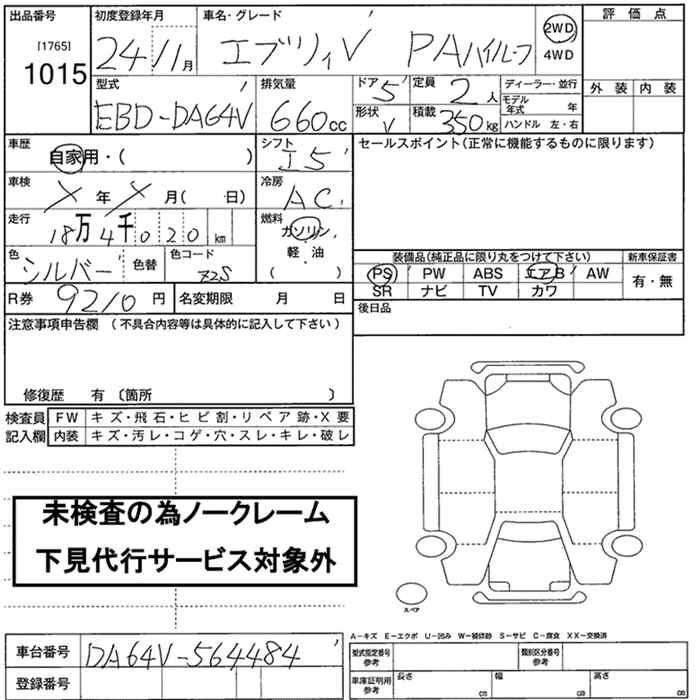 出品番号 初度登録年月 車名・グレード 評価点
[1765] 24/11月 エブリィV PAハイルーフ 2WD
1015 4WD
型式 排気量 ドア 5 定員 2人 ディーラー・並行 外装 内装
EBD-DA64V 660cc 形状 V 積載 350kg モデル年式 年
ハンドル 左・右
車歴 自家用・( ) シフト I5 セールスポイント(正常に機能するものに限ります)
車検 X年 X月( 日) 冷房 AC
走行 18万4千020km 燃料 ガソリン
軽・油
( )
色 シルバー 色替 色コード Z2S 装備品(純正品に限り丸をつけて下さい) 新車保証書
PS PW ABS エアB AW 有・無
R券 9210円 名変期限 月 日 SR ナビ TV カワ
注意事項申告欄(不具合内容等は具体的に記入して下さい) 後日品
修復歴 有〔箇所 〕
検査員 FW キズ・飛石・ヒビ割・リペア跡・X要
記入欄 内装 キズ・汚レ・コゲ・穴・スレ・キレ・破レ
未検査の為ノークレーム
下見代行サービス対象外
スペア
A-キズ E-エクボ U-凹み W-補修跡 S-サビ C-腐食 XX-交換済
車台番号 DA64V-564484 型式指定番号 参考 類別区分番号 参考
登録番号 車庫証明用 参考 長さ cm 幅 cm 高さ cm